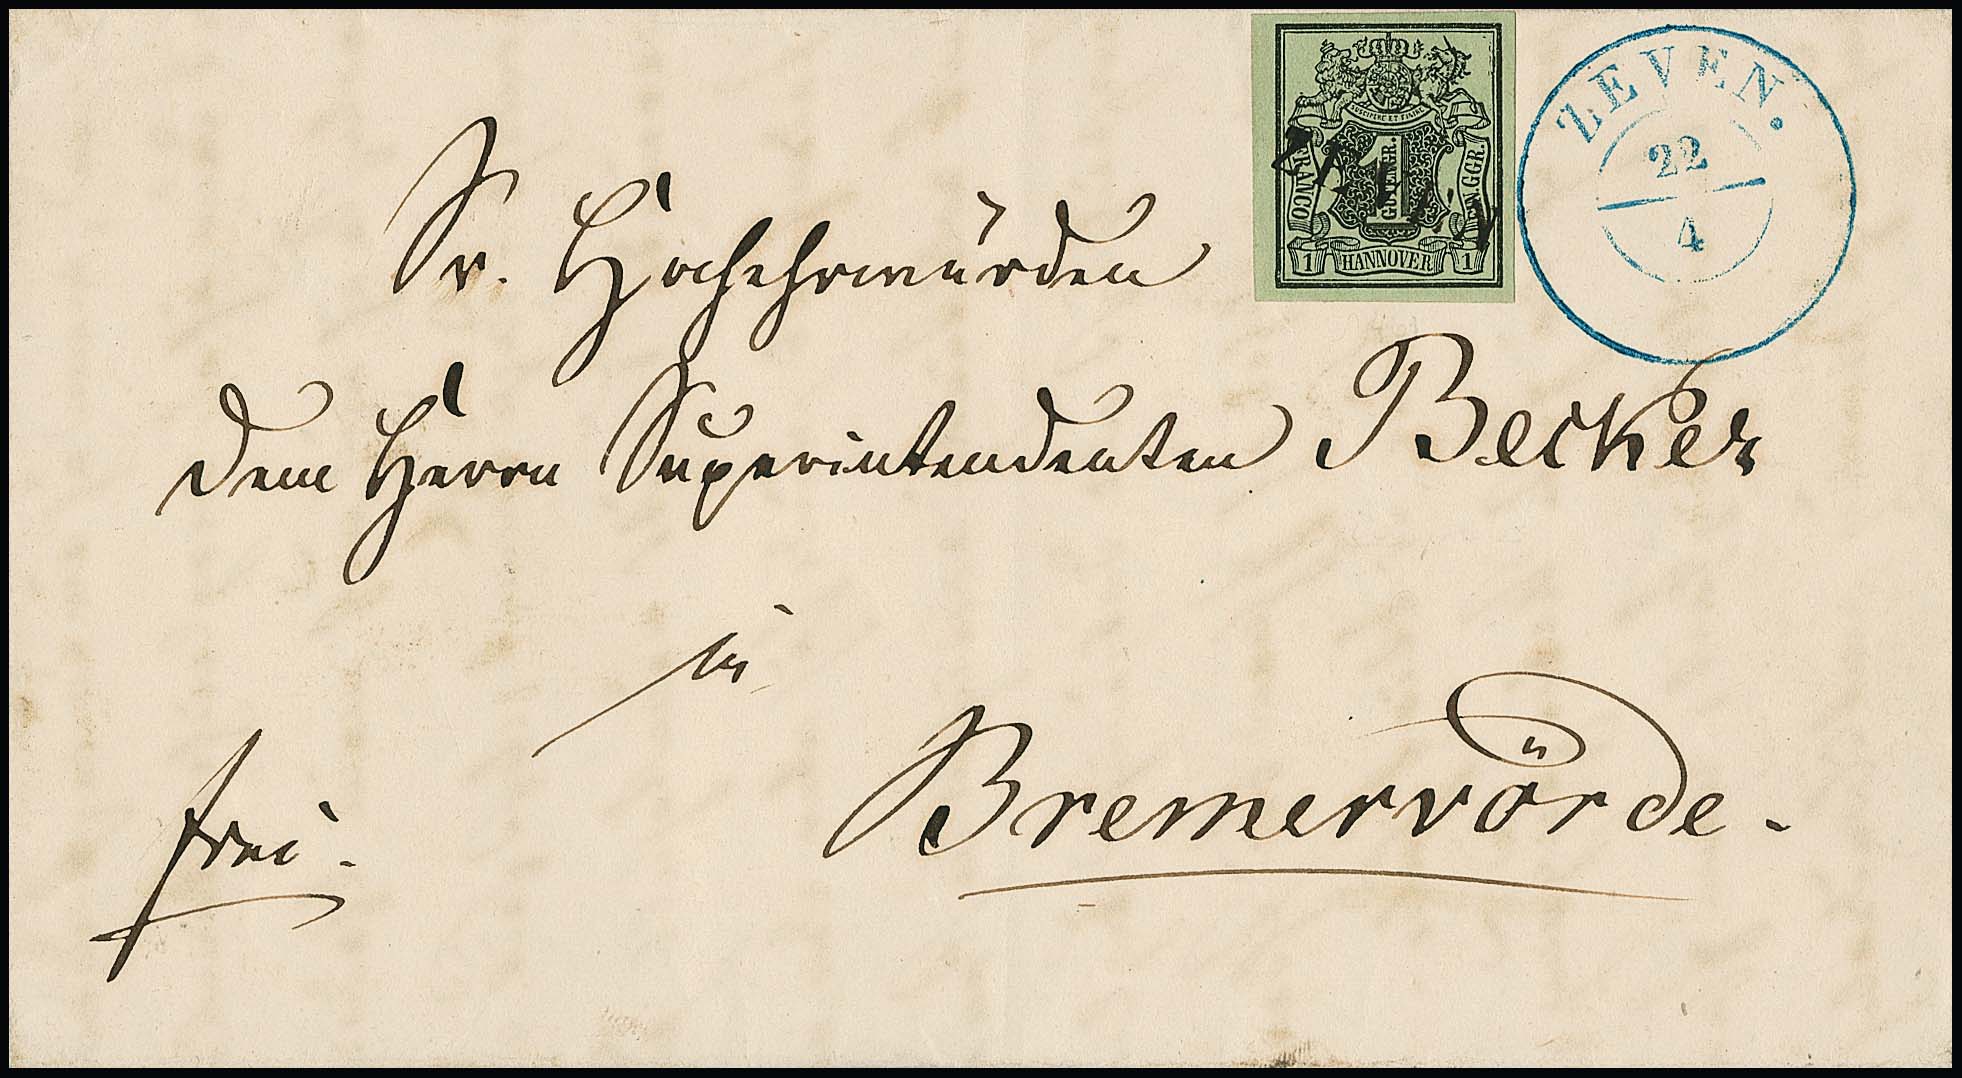 SUSCIPERE ET FINIRE
FRANCO
1
GUTENGR.
EIN GGR.
1 HANNOVER 1
ZEVEN.
22
4
Sr. Hochehrwürden
dem Herrn Superintendenten Becker
in
Bremervörde.
frei.